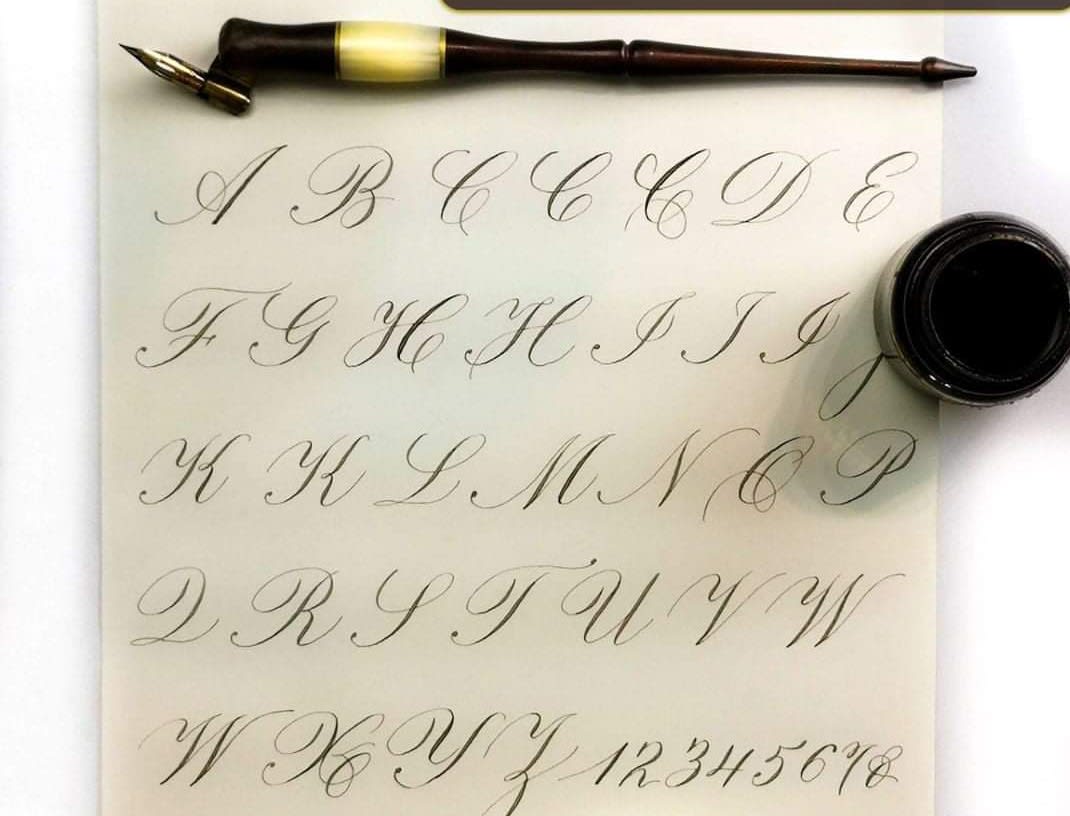 A B C C C D E
F G H H I I I J
K K L M N O P
Q R S T U V W
W X Y Z 1 2 3 4 5 6 7 8